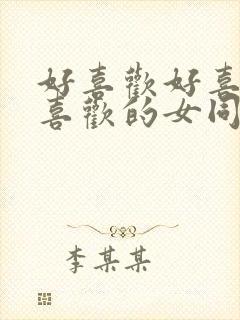 好喜歡好喜
喜歡的女同
李某某